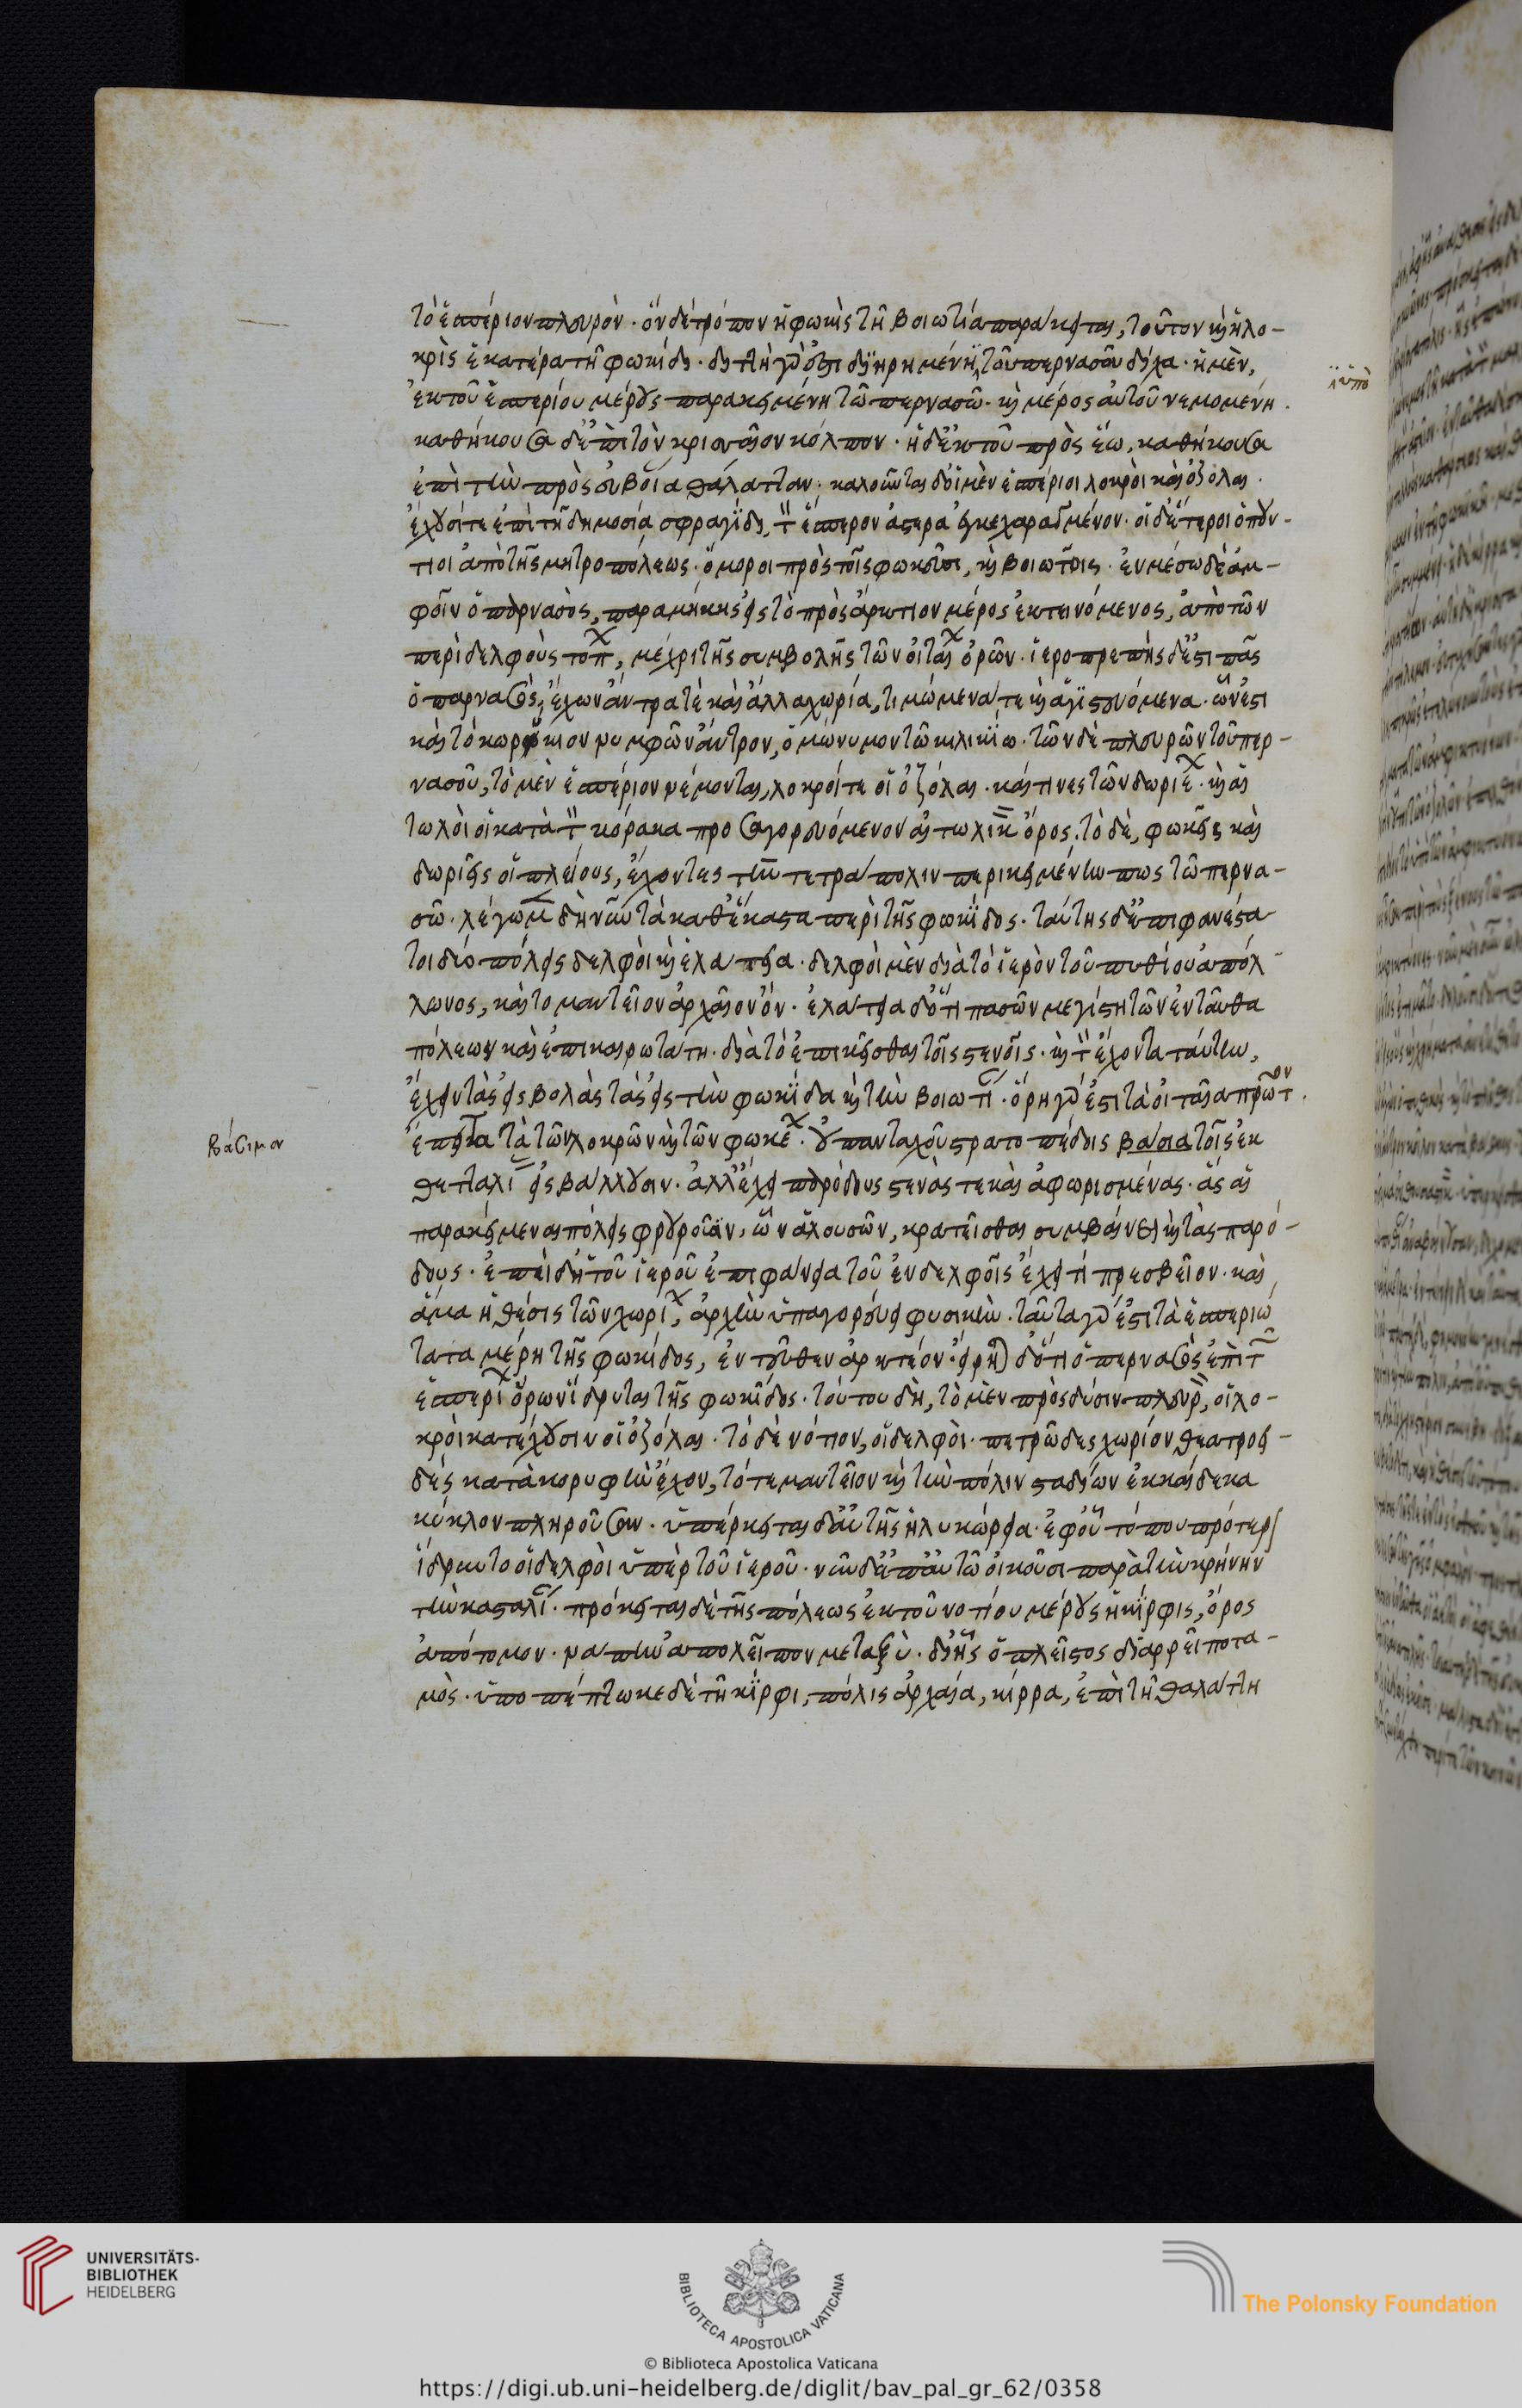 τὸ ἑσπέριον πλευρόν· ὃν δὲ τρόπον ἡ φωκὶς τῇ βοιωτία παράκειται, τοῦτον καὶ ἡ λο-
κρὶς ἑκατέρα τῇ φωκίδι· διττὴ γάρ ἐστι διηρημένη τοῦ περνασοῦ δίχα· ἡ μὲν,
ἐκ τοῦ ἑσπερίου μέρους παρακειμένη τῶ περνασῶ· καὶ μέρος αὐτοῦ νεμομένη·
καθήκουσα δ' ἐπὶ τὸν κρισαῖον κόλπον· ἡ δ' ἐκ τοῦ πρὸς ἕω, καθήκουσα
ἐπὶ τὴν πρὸς εὐβοία θάλατταν· καλοῦνται δ' οἱ μὲν ἑσπέριοι λοκροὶ καὶ ὀζόλαι·
ἔχουσί τε ἐπὶ τῇ δημοσία σφραγῖδι, τὸν ἕσπερον ἀστέρα ἐγκεχαραγμένον· οἱ δ' ἕτεροι ὀπούν-
τιοι ἀπὸ τῆς μητροπόλεως· ὅμοροι πρὸς τοῖς φωκεῦσι, καὶ βοιωτοῖς· ἐν μέσω δὲ ἀμ-
φοῖν ὁ παρνασὸς, παραμήκης εἰς τὸ πρὸς ἄρκτιον μέρος ἐκτεινόμενος, ἀπὸ τῶν
περὶ δελφοὺς τόπ, μέχρι τῆς συμβολῆς τῶν οἰταί ὀρῶν· ἱεροπρεπὴς δ' ἐστὶ πᾶς
ὁ παρνασὸς, ἔχων ἄντρα τὲ καὶ ἄλλα χωρία, τιμώμενα τε καὶ ἁγιστευόμενα· ὧν ἐστι
καὶ τὸ κωρύκιον νυμφῶν ἄντρον, ὁμώνυμον τῶ κιλικίω· τῶν δὲ πλευρῶν τοῦ περ-
νασοῦ, τὸ μὲν ἑσπέριον νέμονται, λοκροί τε οἱ ὀζόλαι· καί τινες τῶν δωριέ· καὶ αἰ
τωλοὶ οἱ κατὰ τὸν κόρακα προσαγορευόμενον αἰτωλικ ὄρος· τὸ δὲ, φωκεῖς καὶ
δωριεῖς οἱ πλείους, ἔχοντες τὴν τετράπολιν περικειμένην πως τῶ περνα-
σῶ· λέγωμ δὴ νῦν τὰ καθ' ἕκαστα περὶ τῆς φωκίδος· ταύτης δ' ἐπιφανέστα
τοι δύο πόλεις δελφοὶ καὶ ἐλάτεια· δελφοὶ μὲν διὰ τὸ ἱερὸν τοῦ πυθίου ἀπόλ-
λωνος, καὶ τὸ μαντεῖον ἀρχαῖον ὄν· ἐλάτεια δ' ὅτι πασῶν μεγίστη τῶν ἐνταῦθα
πόλεων καὶ ἐπικαιρωτάτη· διὰ τὸ ἐπικεῖσθαι τοῖς στενοῖς· καὶ τὸν ἔχοντα ταύτην,
ἔχειν τὰς εἰσβολὰς τὰς εἰς τὴν φωκίδα καὶ τὴν βοιωτί· ὄρη γάρ ἐστι τὰ οἰταῖα πρῶτον·
ἔπειτα τὰ τῶν λοκρῶν καὶ τῶν φωκέ· οὐ πανταχοῦ στρατοπέδοις βάσια τοῖς ἐκ
θετταλί εἰσβάλλουσιν· ἀλλ' ἔχει παρόδους στενάς τε καὶ ἀφωρισμένας· ἃς αἱ
παρακείμεναι πόλεις φρουροῦσιν· ὧν ἁλουσῶν, κρατεῖσθαι συμβαίνει καὶ τὰς παρό-
δους· ἐπεὶ δ' ἡ τοῦ ἱεροῦ ἐπιφάνεια τοῦ ἐν δελφοῖς ἔχει τι πρεσβεῖον· καὶ
ἅμα ἡ θέσις τῶν χωρί, ἀρχὴν ὑπαγορεύει φυσικὴν· ταῦτα γάρ ἐστι τὰ ἑσπεριώ
τατα μέρη τῆς φωκίδος, ἐντεῦθεν ἀρκτέον· εἴρηται δ' ὅτι ὁ περνασὸς ἐπὶ τῶν
ἑσπερί ὅρων ἵδρυται τῆς φωκίδος· τούτου δὴ, τὸ μὲν πρὸς δύσιν πλευρ, οἱ λο-
κροὶ κατέχουσιν οἱ ὀζόλαι· τὸ δὲ νότιον, οἱ δελφοὶ· πετρῶδες χωρίον θεατροει-
δές κατὰ κορυφὴν ἔχον, τό τε μαντεῖον καὶ τὴν πόλιν σταδίων ἑκκαίδεκα
κύκλον πληροῦσαν· ὑπέρκειται δ' αὐτῆς ἡ λυκώρεια· ἐφ' οὗ τόπου πρότερ
ἵδρυντο οἱ δελφοὶ ὑπὲρ τοῦ ἱεροῦ· νῦν δ' ἐπ' αὐτῶ οἰκοῦσι παρὰ τὴν κρήνην
τὴν κασταλί· πρόκειται δὲ τῆς πόλεως ἐκ τοῦ νοτίου μέρους ἡ κίρφις, ὄρος
ἀπότομον· νάπην ἀπολεῖπον μεταξὺ· δι' ἧς ὁ πλεῖστος διαρρεῖ ποτα-
μὸς· ὑποπέπτωκε δὲ τῇ κίρφι, πόλις ἀρχαία, κίρρα, ἐπὶ τῇ θαλάττη
ὑπὸ
βάσιμον
UNIVERSITÄTS-
BIBLIOTHEK
HEIDELBERG
BIBLIOTECA APOSTOLICA VATICANA
The Polonsky Foundation
© Biblioteca Apostolica Vaticana
https://digi.ub.uni-heidelberg.de/diglit/bav_pal_gr_62/0358